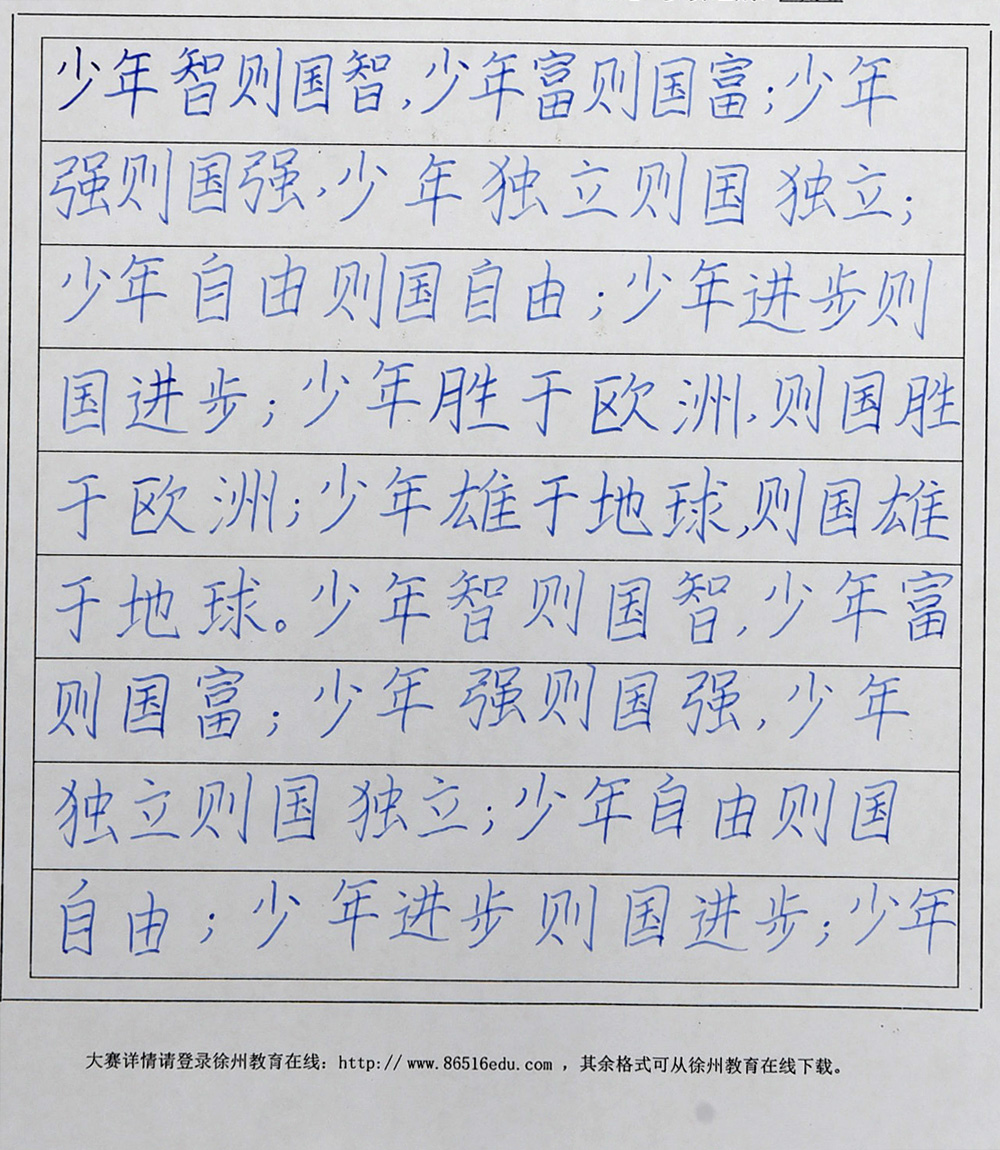 少年智则国智,少年富则国富;少年
强则国强,少年独立则国独立;
少年自由则国自由;少年进步则
国进步;少年胜于欧洲,则国胜
于欧洲;少年雄于地球,则国雄
于地球。少年智则国智,少年富
则国富;少年强则国强,少年
独立则国独立;少年自由则国
自由;少年进步则国进步;少年
大赛详情请登录徐州教育在线：http://www.86516edu.com ，其余格式可从徐州教育在线下载。